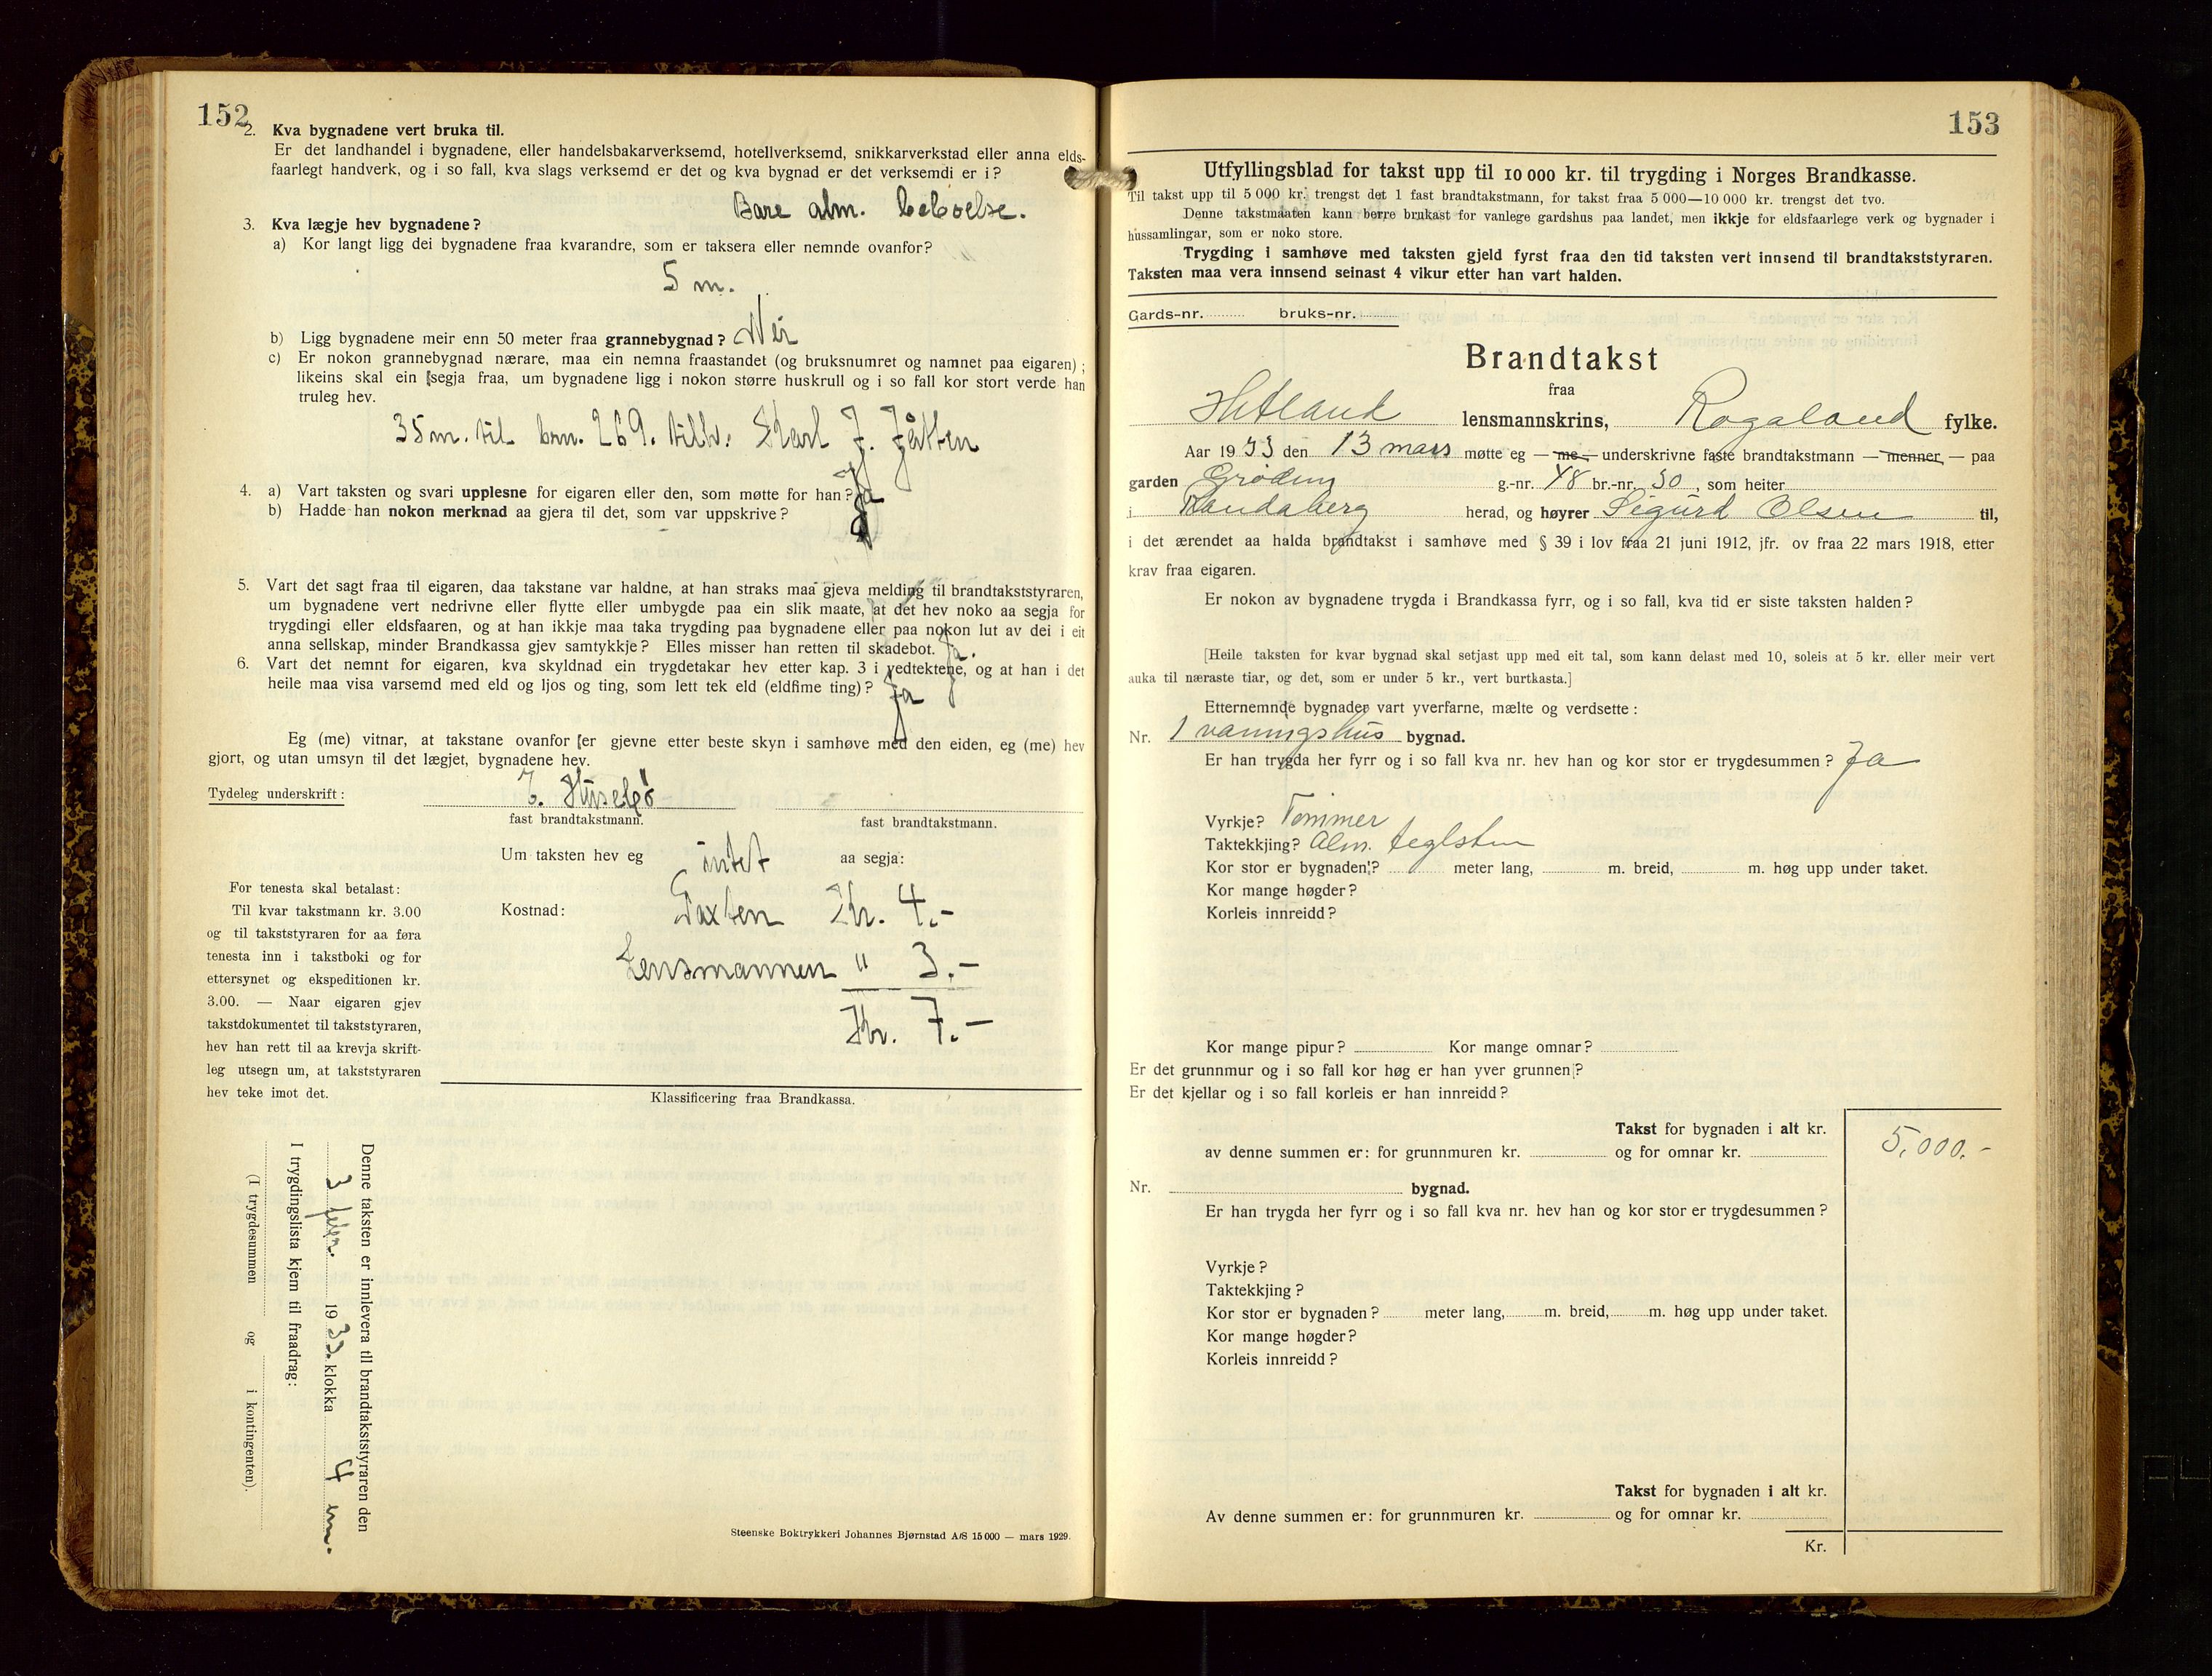 152
2. Kva bygnadene vert bruka til.
Er det landhandel i bygnadene, eller handelsbakarverksemd, hotellverksemd, snikkarverkstad eller anna elds-
faarlegt handverk, og i so fall, kva slags verksemd er det og kva bygnad er det verksemdi er i?
Bare alm. beboelse.
3. Kva lægje hev bygnadene?
a) Kor langt ligg dei bygnadene fraa kvarandre, som er taksera eller nemnde ovanfor?
5 m.
b) Ligg bygnadene meir enn 50 meter fraa grannebygnad? Nei
c) Er nokon grannebygnad nærare, maa ein nemna fraastandet (og bruksnumret og namnet paa eigaren);
likeins skal ein segja fraa, um bygnadene ligg i nokon større huskrull og i so fall kor stort verde han
truleg hev.
35 m. til brn. 269. tilh. Karl J. Jåtten
4. a) Vart taksten og svari upplesne for eigaren eller den, som møtte for han? Ja
b) Hadde han nokon merknad aa gjera til det, som var uppskrive?
5. Vart det sagt fraa til eigaren, daa takstane var haldne, at han straks maa gjeva melding til brandtakststyraren,
um bygnadene vert nedrivne eller flytte eller umbygde paa ein slik maate, at det hev noko aa segja for
trygdingi eller eldsfaaren, og at han ikkje maa taka trygding paa bygnadene eller paa nokon lut av dei i eit
anna sellskap, minder Brandkassa gjev samtykkje? Elles misser han retten til skadebot. Ja.
6. Vart det nemnt for eigaren, kva skyldnad ein trygdetakar hev etter kap. 3 i vedtektene, og at han i det
heile maa visa varsemd med eld og ljos og ting, som lett tek eld (eldfime ting)? Ja
Eg (me) vitnar, at takstane ovanfor er gjevne etter beste skyn i samhøve med den eiden, eg (me) hev
gjort, og utan umsyn til det lægjet, bygnadene hev.
Tydeleg underskrift: T. Husebö
fast brandtakstmann. fast brandtakstmann.
Um taksten hev eg intet aa segja:
Kostnad: Taxten Kr. 4.-
Lensmannen " 3.-
Kr. 7.-
For tenesta skal betalast:
Til kvar takstmann kr. 3.00
og til takststyraren for aa føra
tenesta inn i takstboki og for
ettersynet og ekspeditionen kr.
3.00. — Naar eigaren gjev
takstdokumentet til takststyraren,
hev han rett til aa krevja skrift-
leg utsegn um, at takststyraren
hev teke imot det.
Klassificering fraa Brandkassa.
Denne taksten er innlevera til brandtakststyraren den
3 febr. 1933. klokka 4 em.
I trygdingslista kjem til fraadrag:
(I trygdesummen og i kontingenten).
Steenske Boktrykkeri Johannes Bjørnstad A/S 15 000 — mars 1929.
153
Utfyllingsblad for takst upp til 10 000 kr. til trygding i Norges Brandkasse.
Til takst upp til 5 000 kr. trengst det 1 fast brandtakstmann, for takst fraa 5 000—10 000 kr. trengst det tvo.
Denne takstmaaten kann berre brukast for vanlege gardshus paa landet, men ikkje for eldsfaarlege verk og bygnader i
hussamlingar, som er noko store.
Trygding i samhøve med taksten gjeld fyrst fraa den tid taksten vert innsend til brandtakststyraren.
Taksten maa vera innsend seinast 4 vikur etter han vart halden.
Gards-nr. bruks-nr.
Brandtakst
fraa
Hetland lensmannskrins, Rogaland fylke.
Aar 1933 den 13 mars møtte eg — me — underskrivne faste brandtakstmann — menner — paa
garden Grødem g.-nr. 48 br.-nr. 50, som heiter
i Randaberg herad, og høyrer Sigurd Olsen til,
i det ærendet aa halda brandtakst i samhøve med § 39 i lov fraa 21 juni 1912, jfr. ov fraa 22 mars 1918, etter
krav fraa eigaren.
Er nokon av bygnadene trygda i Brandkassa fyrr, og i so fall, kva tid er siste taksten halden?
[Heile taksten for kvar bygnad skal setjast upp med eit tal, som kann delast med 10, soleis at 5 kr. eller meir vert
auka til næraste tiar, og det, som er under 5 kr., vert burtkasta.]
Etternemnde bygnader vart yverfarne, mælte og verdsette:
Nr. 1 vaaningshus bygnad.
Er han trygda her fyrr og i so fall kva nr. hev han og kor stor er trygdesummen? Ja
Vyrkje? Tømmer
Taktekkjing? Alm. teglsten
Kor stor er bygnaden? meter lang, m. breid, m. høg upp under taket.
Kor mange høgder?
Korleis innreidd?
Kor mange pipur? Kor mange omnar?
Er det grunnmur og i so fall kor høg er han yver grunnen?
Er det kjellar og i so fall korleis er han innreidd?
Takst for bygnaden i alt kr. 5,000.-
av denne summen er: for grunnmuren kr. og for omnar kr.
Nr. bygnad.
Er han trygda her fyrr og i so fall kva nr. hev han og kor stor er trygdesummen?
Vyrkje?
Taktekkjing?
Kor stor er bygnaden? meter lang, m. breid, m. høg upp under taket.
Kor mange høgder?
Korleis innreidd?
Takst for bygnaden i alt kr.
Av denne summen er: for grunnmuren kr. og for omnar kr.
Kr.